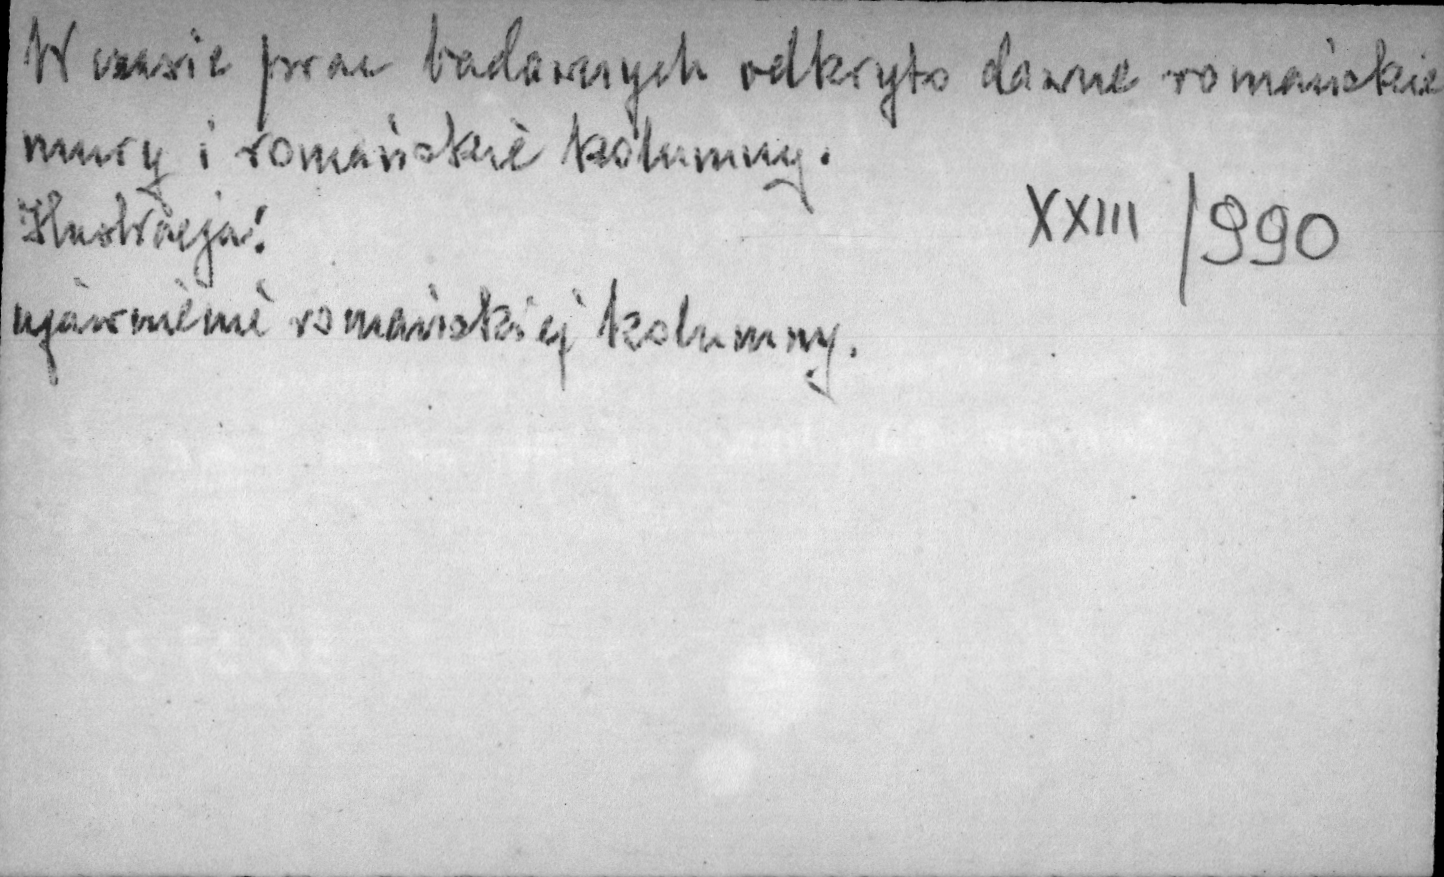 W czasie prac badawczych odkryto dawne romańskie
mury i romańskie kolumny.
Ilustracja:
XXIII/990
ujawnienie romańskiej kolumny.